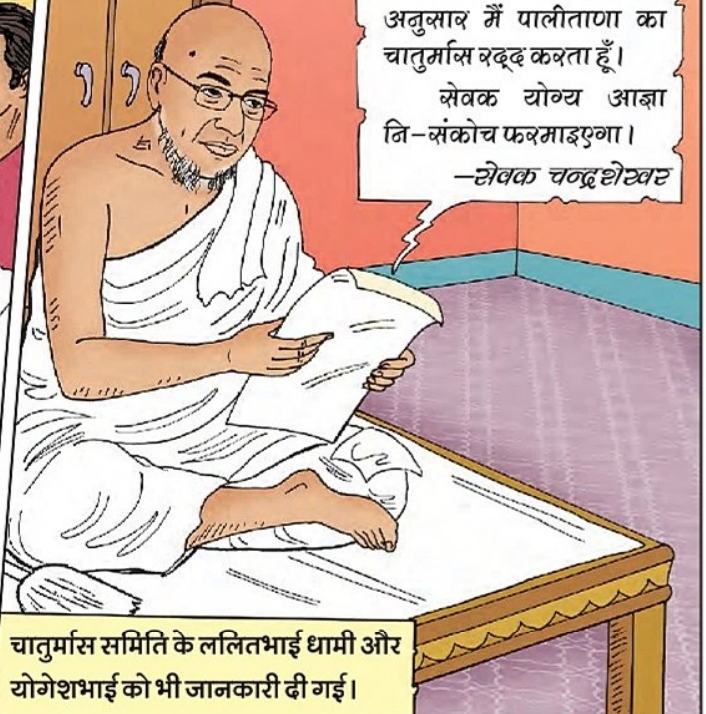 अनुसार मैं पालीताणा का
चातुर्मास रद्द करता हूँ।
सेवक योग्य आज्ञा
नि-संकोच फरमाइएगा।
-सेवक चन्द्रशेखर
चातुर्मास समिति के ललितभाई धामी और
योगेशभाई को भी जानकारी दी गई।